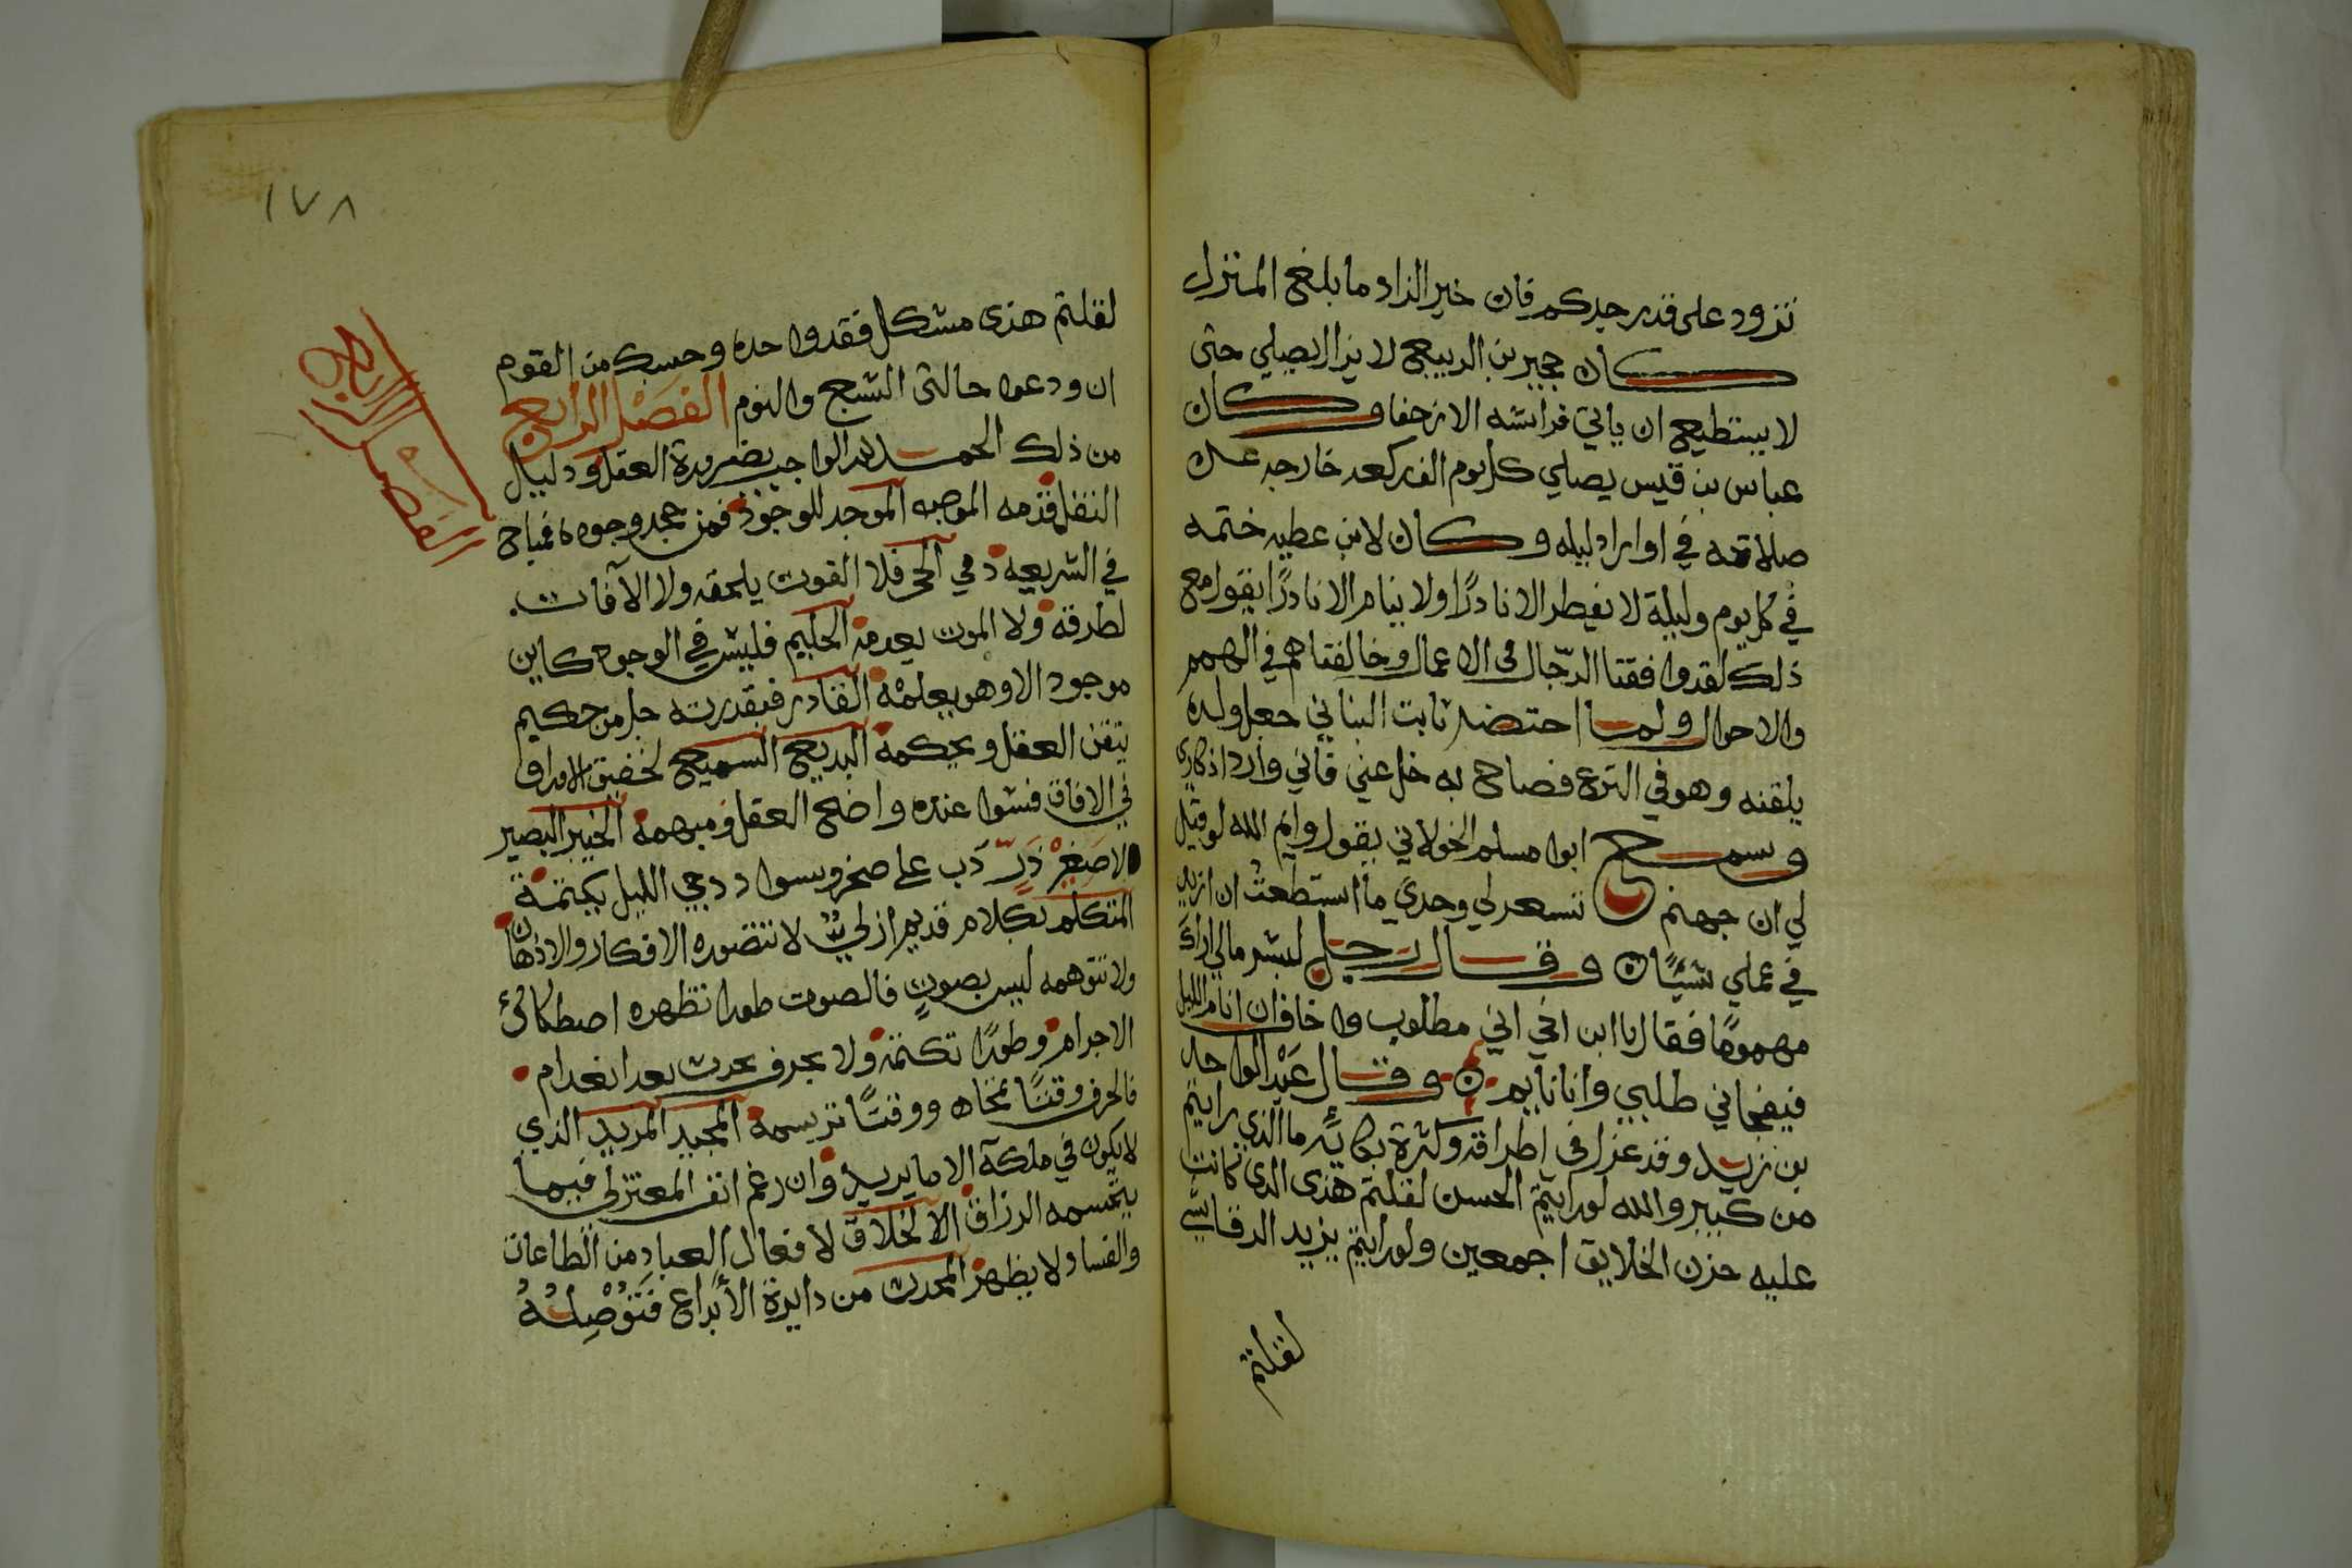 تزود على قدر جدكم فان خير الزاد ما بلغ المنزل
كان حجير بن الربيع لا يزال يصلي حتى
لا يستطيع ان ياتي فراشه الا زحفا وكان
عباس بن قيس يصلي كل يوم الف ركعه خارجه عن
صلاته في اوراد ليله وكان لابن عطيه ختمه
في كل يوم وليلة لا يفطر الا نادرًا ولا ينام الا نادرًا يقول مع
ذلك لقد وافقنا الرجال في الاعمال وخالفناهم في الهمم
والاحوال ولما احتضر ثابت البناني جعل ولده
يلقنه وهو في النزع فصاح به خل عني فاني وارد اذكاري
وسمع ابو مسلم الخولاني يقول وايم الله لو قيل
لي ان جهنم تسعر لي وحدي ما استطعت ان ازيد
في عملي شيئًا وقال رجل لبشر مالي اراك
مهمومًا فقال يا ابن اخي اني مطلوب واخاف ان انام الليل
فيفجاني طلبي وانا نايم وقال عبد الواحد
بن زيد وقد عزل في اطراقه وكثرة بكايه ما الذي رايتم
من كبير والله لو رايتم الحسن لقلتم هذى الذي كانت
عليه حزن الخلايق اجمعين ولو رايتم يزيد الرقاشي
لقلتم
١٧٨
لقلتم هذى مشكل فقد واحده وحسبك من القوم
ان ودعوا حالتى الشبع والنوم الفصل الرابع
الفصل الرابع
من ذلك الحمد لله الواجب بضرورة العقل ودليل
النقل قدمه الموجد للوجود فمن جحد وجوده فمباح
في الشريعه دمي الحي فلا الفوت يلحقه ولا الآفات
لطرقه ولا الموت يعدمه الحليم فليس في الوجود كاين
موجود الا وهو يعلمه القادر فبقدرته جل من حكيم
يتقن العقل ويحكمه البديع السميع لخفيق الاوراق
في الافاق فسوا عنده واضح العقل ومبهمه الخبير البصير
لاصغر ذر دب على صخر وسواد دجي الليل يكتمه
المتكلم بكلام قديم ازلي لا تتصوره الافكار والاذهان
ولا تتوهمه ليس بصوت فالصوت طورا تظهره اصطكاك
الاجرام وطورًا تكتمه ولا بحرف يحدث بعد انعدام
فالحرف وقتًا تمحاه ووقتًا ترسمه المجيد المريد الذي
لا يكون في ملكه الا ما يريد وان رغم انف المعتزلي فيما
يتجسمه الرزاق الا لخلاق لافعال العباد من الطاعات
والفساد ولا يظهر المحدث من دايرة الأبداع